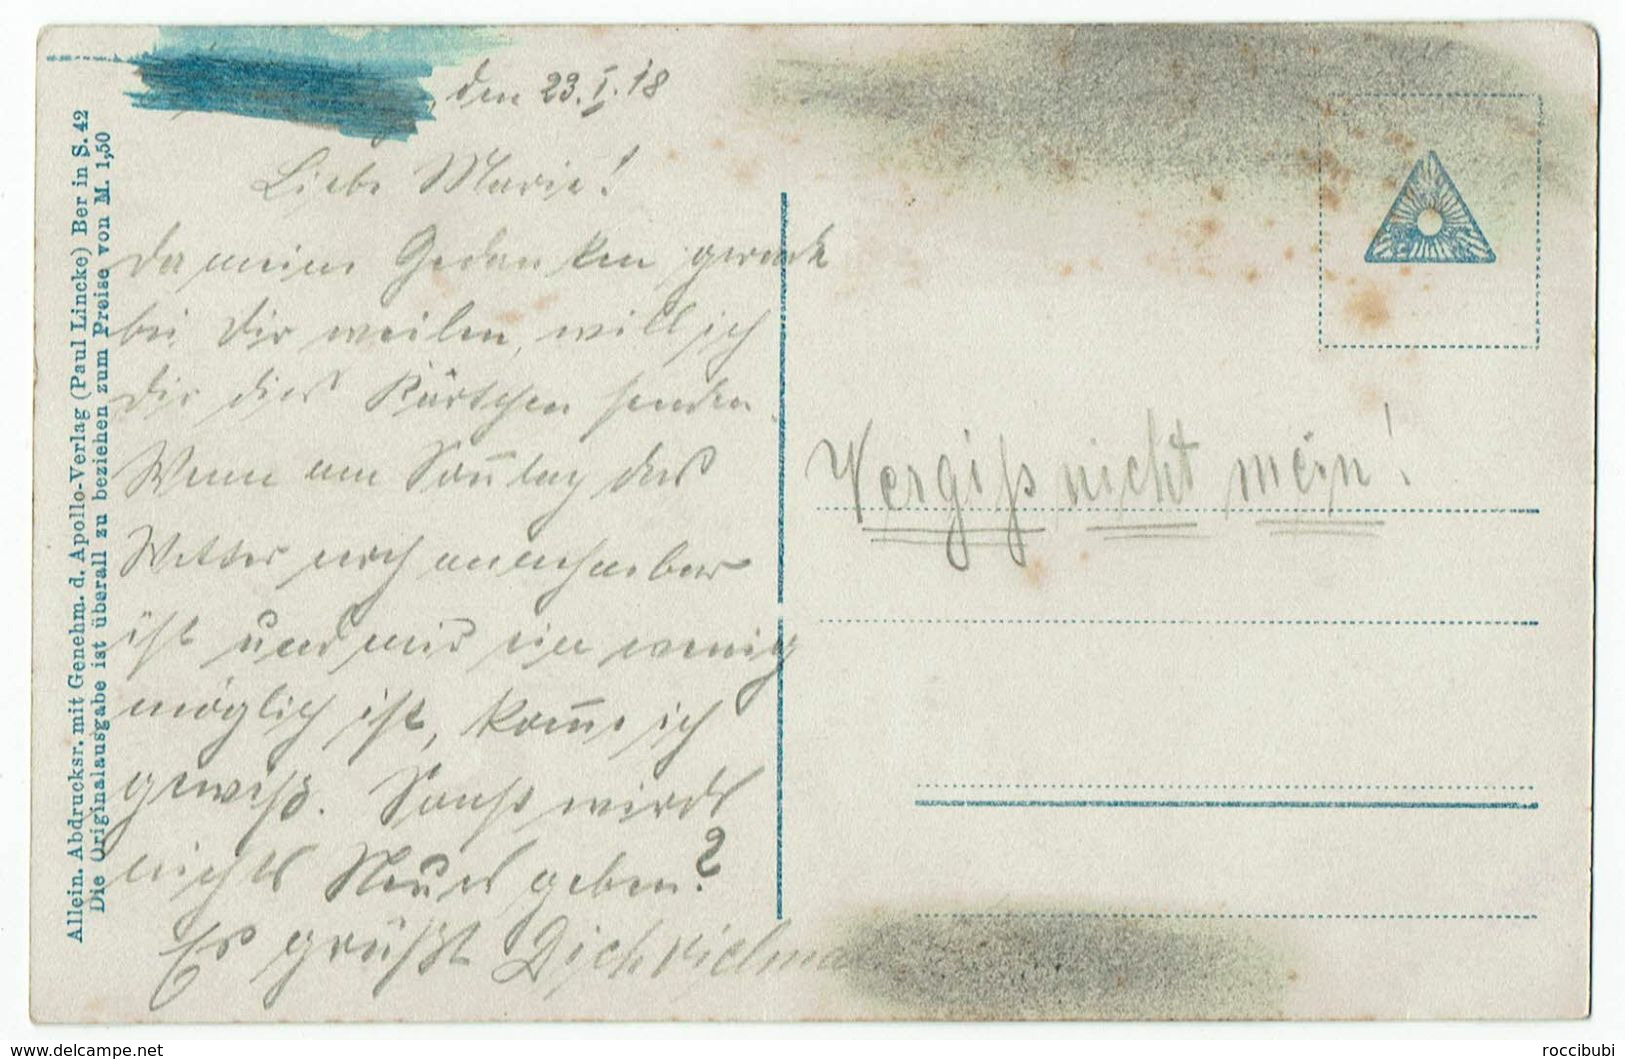 Allein. Abdrucksr. mit Genehm. d. Apollo-Verlag (Paul Lincke) Ber in S. 42
Die Originalausgabe ist überall zu beziehen zum Preise von M. 1,50
, den 23. I. 18
Liebe Marie!
Da meine Gedanken gerade
bei Dir weilen, will ich
Dir dies Kärtchen senden.
Wenn am Son̄tag das
Wetter noch annehmbar
ist und mir ein wenig
möglich ist, kom̄e ich
gewiß. Sonst wirds
nichts Neues geben?
Es grüßt Dich vielmal
Vergiß nicht mein!
delcampe.net
roccibubi